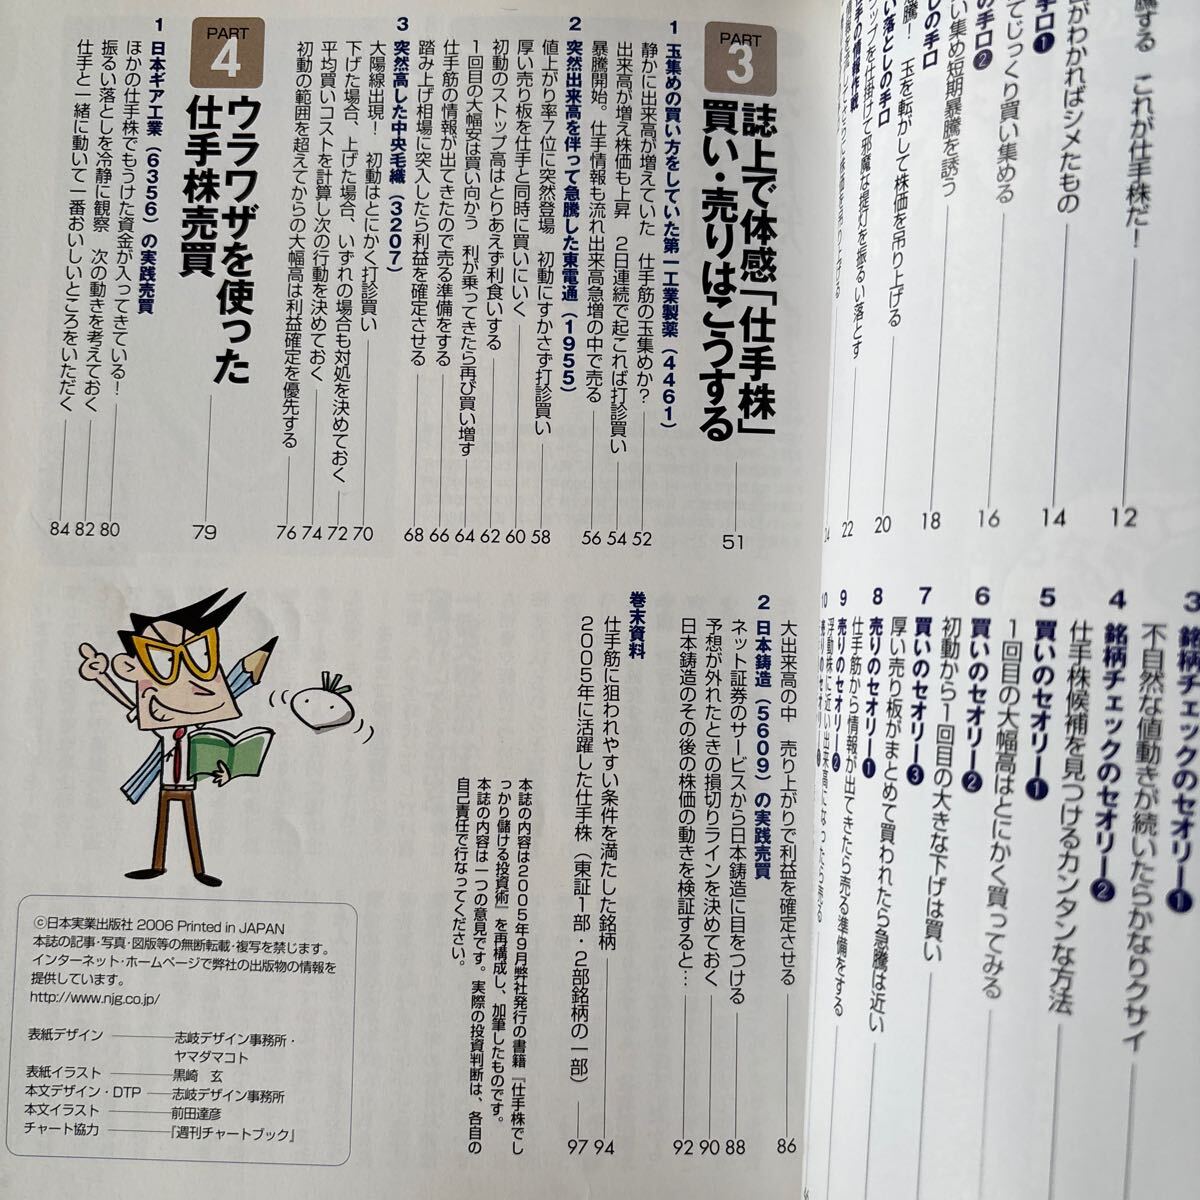 騰する これが仕手株だ! 12
がわかればシメたもの 14
の手口❶
てじっくり買い集める 16
の手口❷
い集め短期暴騰を誘う 18
しの手口
騰! 玉を転がして株価を吊り上げる 20
い落としの手口
ップを仕掛けて邪魔な提灯を振るい落とす 22
手の情報作戦
24
3 銘柄チェックのセオリー❶
不自然な値動きが続いたらかなりクサイ
4 銘柄チェックのセオリー❷
仕手株候補を見つけるカンタンな方法
5 買いのセオリー❶
1回目の大幅高はとにかく買ってみる
6 買いのセオリー❷
初動から1回目の大きな下げは買い
7 買いのセオリー❸
厚い売り板がまとめて買われたら急騰は近い
8 売りのセオリー❶
仕手筋から情報が出てきたら売る準備をする
9 売りのセオリー❷
浮動株に近い出来高になったら売る
10 売りのセオリー
PART 3
誌上で体感「仕手株」
買い・売りはこうする 51
1 玉集めの買い方をしていた第一工業製薬(4461)
静かに出来高が増えていた 仕手筋の玉集めか? 52
出来高が増え株価も上昇 2日連続で起これば打診買い 54
暴騰開始。仕手情報も流れ出来高急増の中で売る 56
2 突然出来高を伴って急騰した東電通(1955)
値上がり率7位に突然登場 初動にすかさず打診買い 58
厚い売り板を仕手と同時に買いにいく 60
初動のストップ高はとりあえず利食いする 62
1回目の大幅安は買い向かう 利が乗ってきたら再び買い増す 64
仕手筋の情報が出てきたので売る準備をする 66
踏み上げ相場に突入したら利益を確定させる 68
3 突然高した中央毛織(3207)
大陽線出現! 初動はとにかく打診買い 70
下げた場合、上げた場合、いずれの場合も対処を決めておく 72
平均買いコストを計算し次の行動を決めておく 74
初動の範囲を超えてからの大幅高は利益確定を優先する 76
PART 4
ウラワザを使った
仕手株売買 79
1 日本ギア工業(6356)の実践売買
ほかの仕手株でもうけた資金が入ってきている! 80
振るい落としを冷静に観察 次の動きを考えておく 82
仕手と一緒に動いて一番おいしいところをいただく 84
大出来高の中 売り上がりで利益を確定させる 86
2 日本鋳造(5609)の実践売買
ネット証券のサービスから日本鋳造に目をつける 88
予想が外れたときの損切りラインを決めておく 90
日本鋳造のその後の株価の動きを検証すると… 92
巻末資料
仕手筋に狙われやすい条件を満たした銘柄 94
2005年に活躍した仕手株(東証1部・2部銘柄の一部) 97
本誌の内容は2005年9月弊社発行の書籍『仕手株でし
っかり儲ける投資術』を再構成し、加筆したものです。
本誌の内容は一つの意見です。実際の投資判断は、各自の
自己責任で行なってください。
©日本実業出版社 2006 Printed in JAPAN
本誌の記事・写真・図版等の無断転載・複写を禁じます。
インターネット・ホームページで弊社の出版物の情報を
提供しています。
http://www.njg.co.jp/
表紙デザイン 志岐デザイン事務所・
ヤマダマコト
表紙イラスト 黒崎 玄
本文デザイン・DTP 志岐デザイン事務所
本文イラスト 前田達彦
チャート協力 『週刊チャートブック』